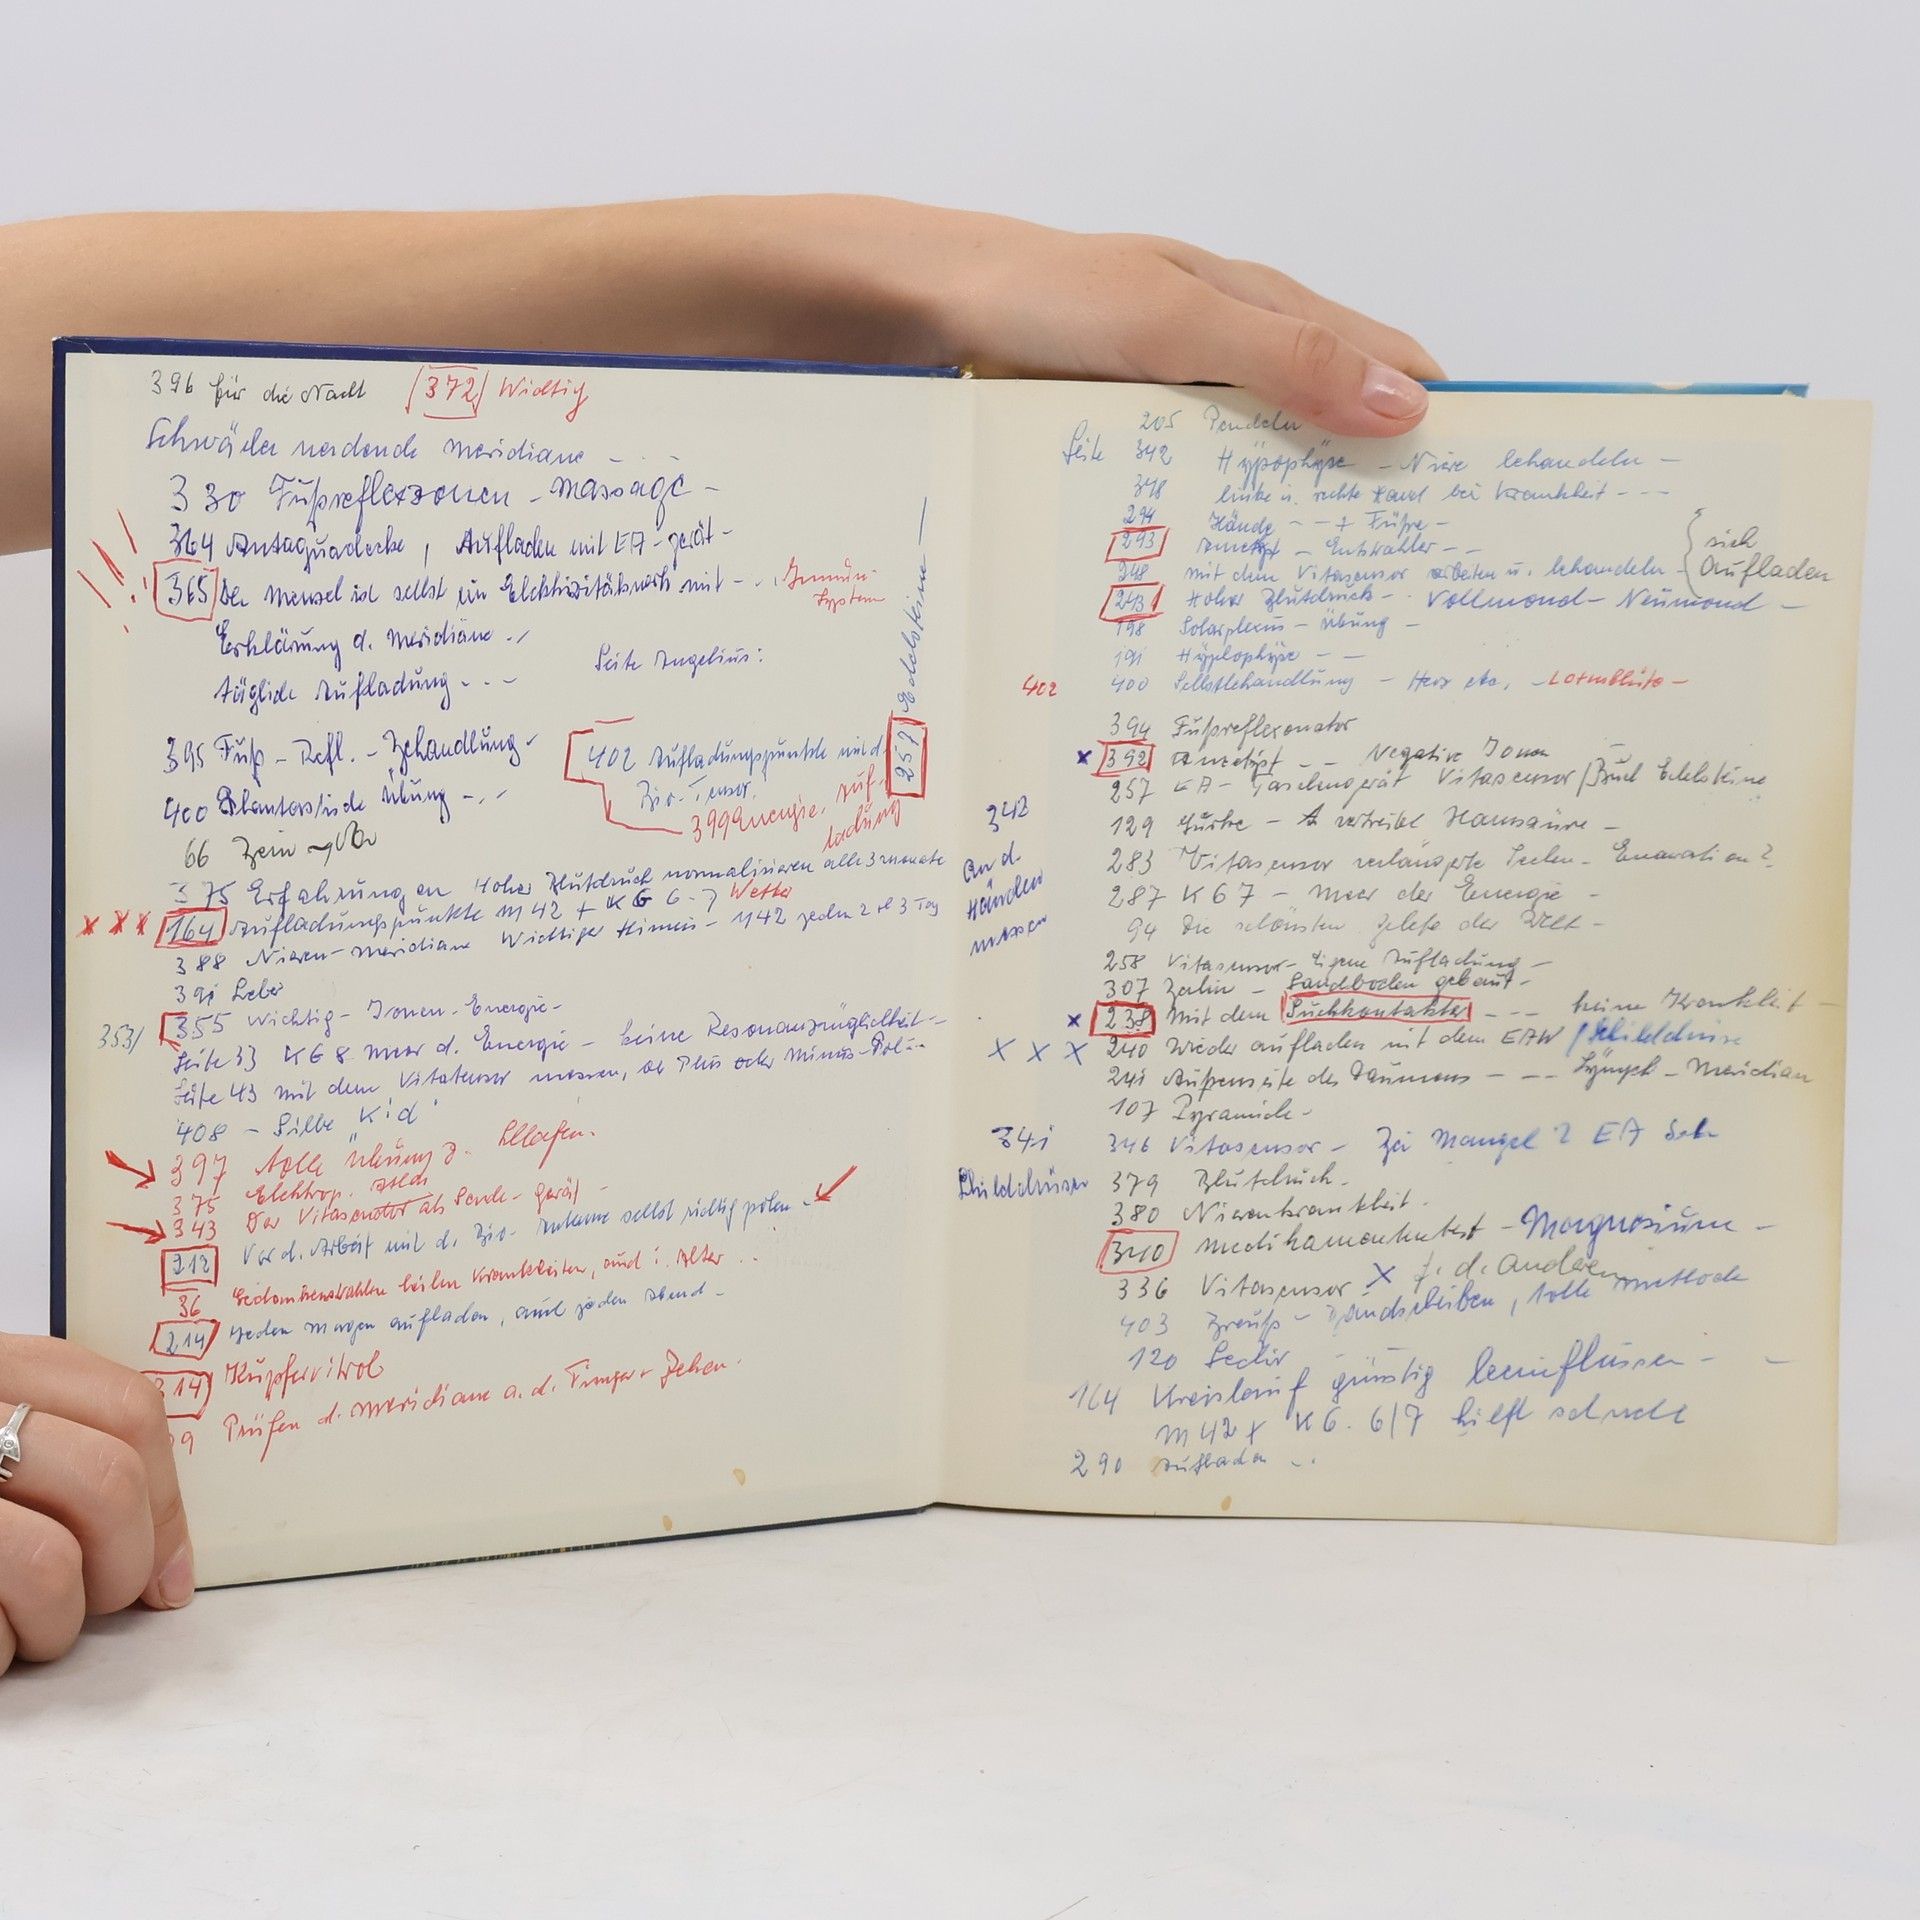 396 für die Nacht (372) Wichtig
Schwächer werdende Meridiane - - -
330 Fußreflexzonen - Massage -
364 Antaquadecke, Aufladen mit EA-gerät -
365 Der Mensch ist selbst ein Elektrizitätswerk mit - . . Immun-
System
Erklärung d. Meridiane . -
Tägliche Aufladung . - -
Seite Angelius:
395 Fuß - Refl. - Behandlung -
400 Phantastische Übung - . -
402 Aufladungspunkte mit d.
Bio-Tensor.
399 Energie. Auf-
ladung
259 Edelsteine -
66
375 Erfahrungen Hoher Blutdruck normalisieren alle 3 Monate
164 Aufladungspunkte M42 + KG 6-7 Wetter
388 Nieren-Meridiane Wichtiger Hinweis - M42 jeden 2 3 Tag
391 Leber
353/ 355 Wichtig - Ionen-Energie -
Seite 33 KG 8 Meer d. Energie - keine Resonanzmöglichkeit -
Seite 43 mit dem Vitatensor messen, ob Plus oder Minus-Pol -
408 - Silbe "Kid"
397 tolle Übung z. Schlafen.
375 Elektrop.
343 Der Vitasensor als Sende-gerät -
212 Vor d. Arbeit mit d. Bio-Antenne selbst richtig polen -
36 heilen Krankheiten, auch i. Alter . .
214 Jeden Morgen aufladen, auch jeden Abend -
314 Kupfervitrol
Prüfen d. Meridiane a. d. Finger + Zehen.
205 Pendeln
Seite 342 Hypophyse - Niere behandeln -
348 linke u. rechte Hand bei Krankheit - - -
294 Hände - - + Füße -
293 - Entstrahler - -
248 mit dem Vitasensor arbeiten u. behandeln - { sich
Aufladen
243 Hoher Blutdruck - Vollmond - Neumond -
198 Solarplexus - Übung -
191 Hypophyse - -
402 400 Selbstbehandlung - Herz etc. - Lotusblüte -
394 Fußreflexonator
x 392 - - Negative Ionen
257 EA - Taschengerät Vitasensor / Buch Edelsteine
342
An d.
Händen
messen
129 Gurke - vertreibt Harnsäure -
283 Vitasensor verlängerte Seelen-
287 KG 7 - Meer der Energie -
94 Die schönsten der Welt -
258 Vitasensor - Eigene Aufladung -
307 - Sandboden gebaut -
x 238 Mit dem Suchkontakter - - - keine Krankheit -
x x x 240 Wieder aufladen mit dem EAW / Schilddrüse
241 Außenseite des Daumens - - - Lymph - Meridian
107 Pyramide -
341 346 Vitasensor - Bei Mangel
Schilddrüse 379 Blutdruck -
380 Nierenkrankheit -
340 Medikamententest - Magnesium -
336 Vitasensor - x f. d. Anderen
403 Breuß - Bandscheiben, tolle Methode
120
164 Kreislauf günstig beeinflussen - -
M42 + KG. 6/7 hilft schnell
290 Aufladen - .